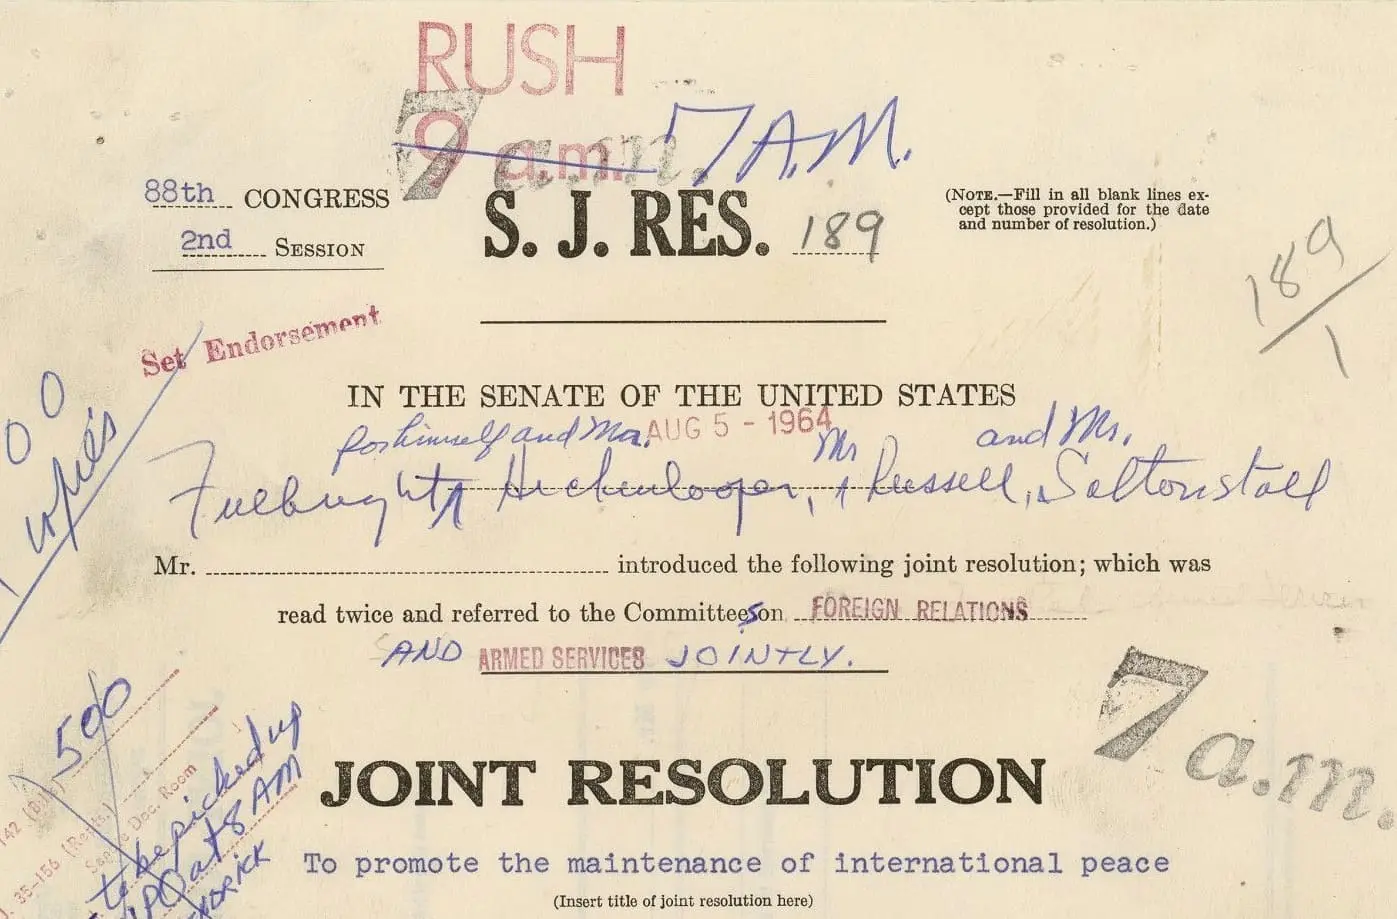 RUSH
9 a.m.
7 a.m.
7 A.M.
88th CONGRESS
2nd SESSION
S. J. RES. 189
(NOTE.—Fill in all blank lines ex-
cept those provided for the date
and number of resolution.)
189
1
Set Endorsement
IN THE SENATE OF THE UNITED STATES
AUG 5 - 1964
for himself and Mr. Mr and Mr.
Fulbright Hickenlooper, Russell, Saltonstall
Mr. introduced the following joint resolution; which was
read twice and referred to the Committees on FOREIGN RELATIONS
AND ARMED SERVICES JOINTLY.
00
copies
7 a.m.
500
to be picked up
GPO at 8 AM
35-156 (Repts.)
Doc. Room
JOINT RESOLUTION
To promote the maintenance of international peace
(Insert title of joint resolution here)